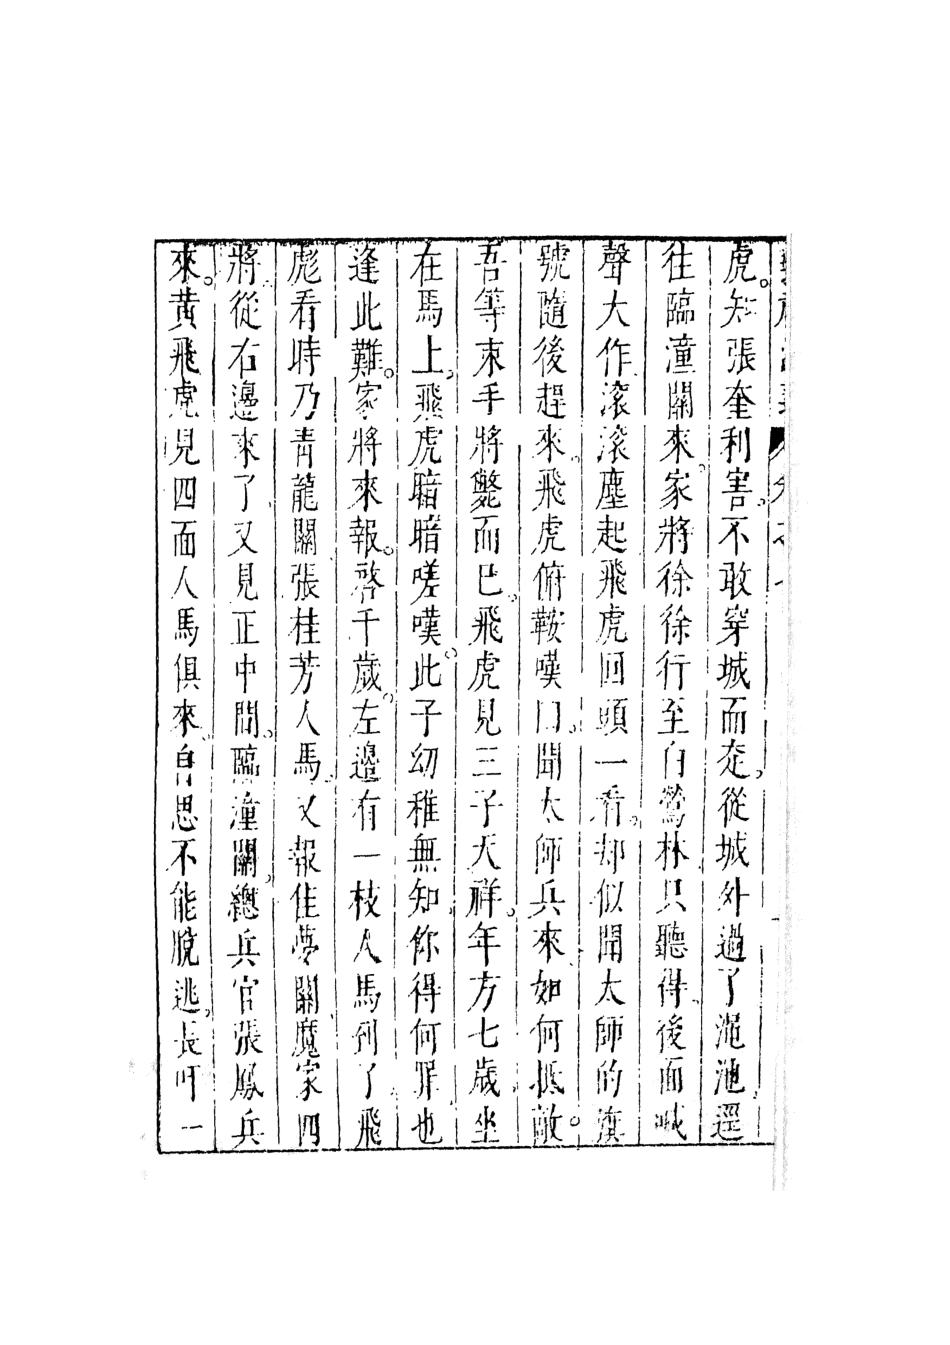 虎。知張奎利害。不敢穿城而走。從城外過了澠池逕
往臨潼關來。家將徐徐行至白鶯林只聽得後面喊
聲大作滾滾塵起飛虎回頭一看。却似聞太師的旗
號隨後趕來。飛虎俯鞍嘆口。聞太師兵來如何抵敵。
吾等束手將斃而已。飛虎見三子天祥。年方七歲坐
在馬上。飛虎暗暗嗟嘆。此子幼稚無知。你得何罪也
逢此難。家將來報。啓千歲。左邊有一枝人馬到了飛
彪看時乃青龍關張桂芳人馬。又報佳夢關魔家四
將。從右邊來了。又見正中間。臨潼關。總兵官張鳳兵
來。黃飛虎見四面人馬俱來。自思不能脫逃。長吁一